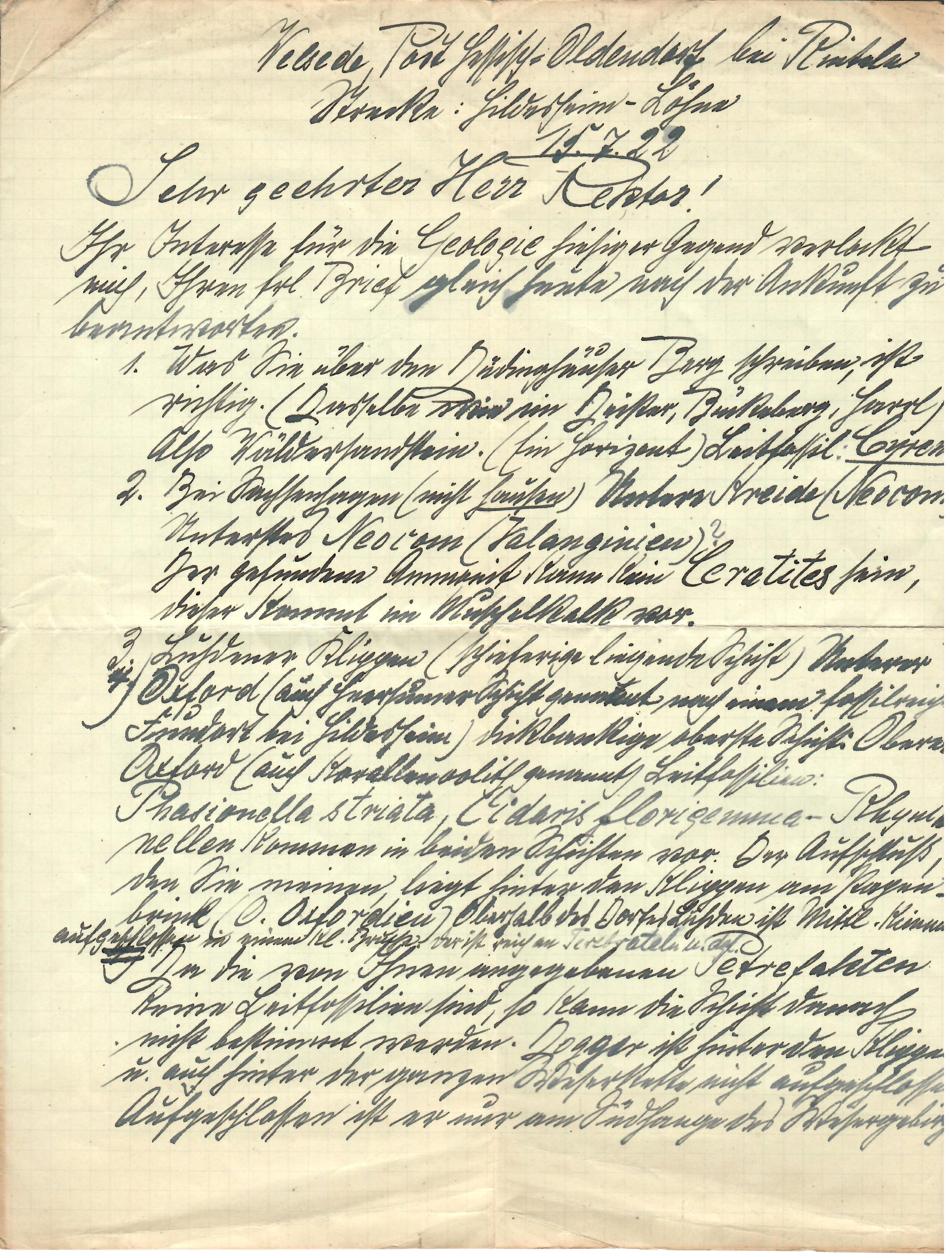 Velsede, Post Hessisch-Oldendorf bei Rinteln
Strecke: Hildesheim-Löhne
15.7.22
Sehr geehrter Herr Rektor!
Ihr Interesse für die Geologie hiesiger Gegend verlockt
mich, Ihren frl Brief gleich heute nach der Ankunft zu
beantworten.
1. Was Sie über den Bückinghäuser Berg schreiben, ist
richtig. (Dasselbe im Deister, Bückeberg, Harrl)
Also Wäldersandstein. (Ein Horizont) Leitfossil: Cyren
2. Bei Sachsenhagen (nicht hausen) Untere Kreide (Neocom
Unterstes Neocom (Valanginien)?
Der gefundene Ammonit kann kein Ceratites sein,
dieser kommt im Muschelkalk vor.
3. Luhdener Klippen (schieferige liegende Schicht) Unterer
4) Oxford (auch Heersumer Schicht genannt nach einem fossilreich
Fundort bei Hildesheim) dickbankige oberste Schicht: Obere
Oxford (auch Korallenoolith genannt) Leitfossilien:
Phasionella striata, Cidaris florigemma - Rhyncho
nellen kommen in beiden Schichten vor. Der Aufschluß,
den Sie meinen, liegt hinter den Klippen am Papen-
brink (O. Oxfordien) Oberhalb des Dorfes Luhden ist Mittl. Kimm
aufgeschlossen in einem kl. Bruche, der ist reich an Terebrateln u. dgl.
5) Da die von Ihnen angegebenen Petrefakten
keine Leitfossilien sind, so kann die Schicht danach
nicht bestimmt werden. Dogger ist hinter den Klippe
u. auch hinter der ganzen Weserkette nicht aufgeschlosse
Aufgeschlossen ist er nur am Südhange des Wesergebirg